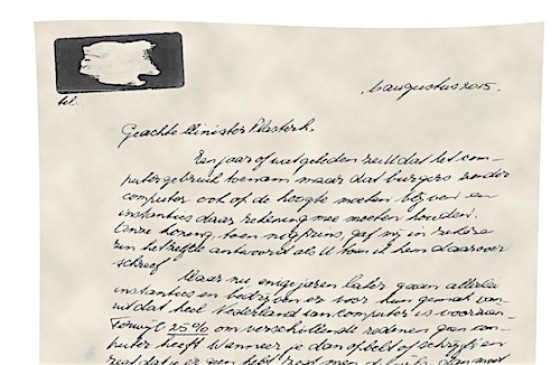 tel.
6 augustus 2015.
Geachte Minister Plasterk,
Een jaar of wat geleden zei U dat het com-
putergebruik toenam maar dat burgers zonder
computer ook op de hoogte moeten blijven en
instanties daar rekening mee moeten houden.
Onze koning, toen nog prins, gaf mij in
een hetzelfde antwoord als U toen ik hen daarover
schreef
Maar nu enige jaren later gaan allerlei
instanties en bedrijven er voor hun gemak van-
uit dat heel Nederland van computer is voorzien.
Terwijl 25% om verschillende redenen geen com-
puter heeft. Wanneer je dan opbelt of schrijft en
zegt dat je er geen hebt zegt men